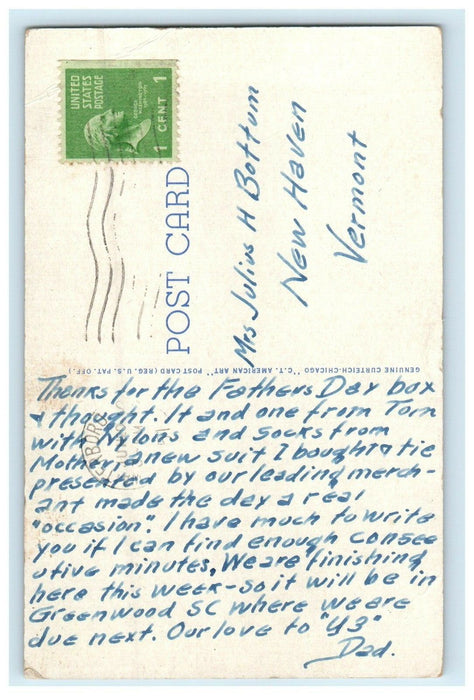 UNITED
STATES
POSTAGE
1 CENT 1
POST CARD
Mrs Julius H Bottum
New Haven
Vermont
GENUINE CURTEICH-CHICAGO "C.T. AMERICAN ART" POST CARD (REG. U.S. PAT. OFF.)
Thanks for the Fathers Day box
& thought. It and one from Tom
with Nylons and socks from
Mother, a new suit I bought & tie
presented by our leading merch-
ant made the day a real
"occasion". I have much to write
you if I can find enough consec
utive minutes. We are finishing
here this week - so it will be in
Greenwood SC where we are
due next. Our love to "U3"
Dad.